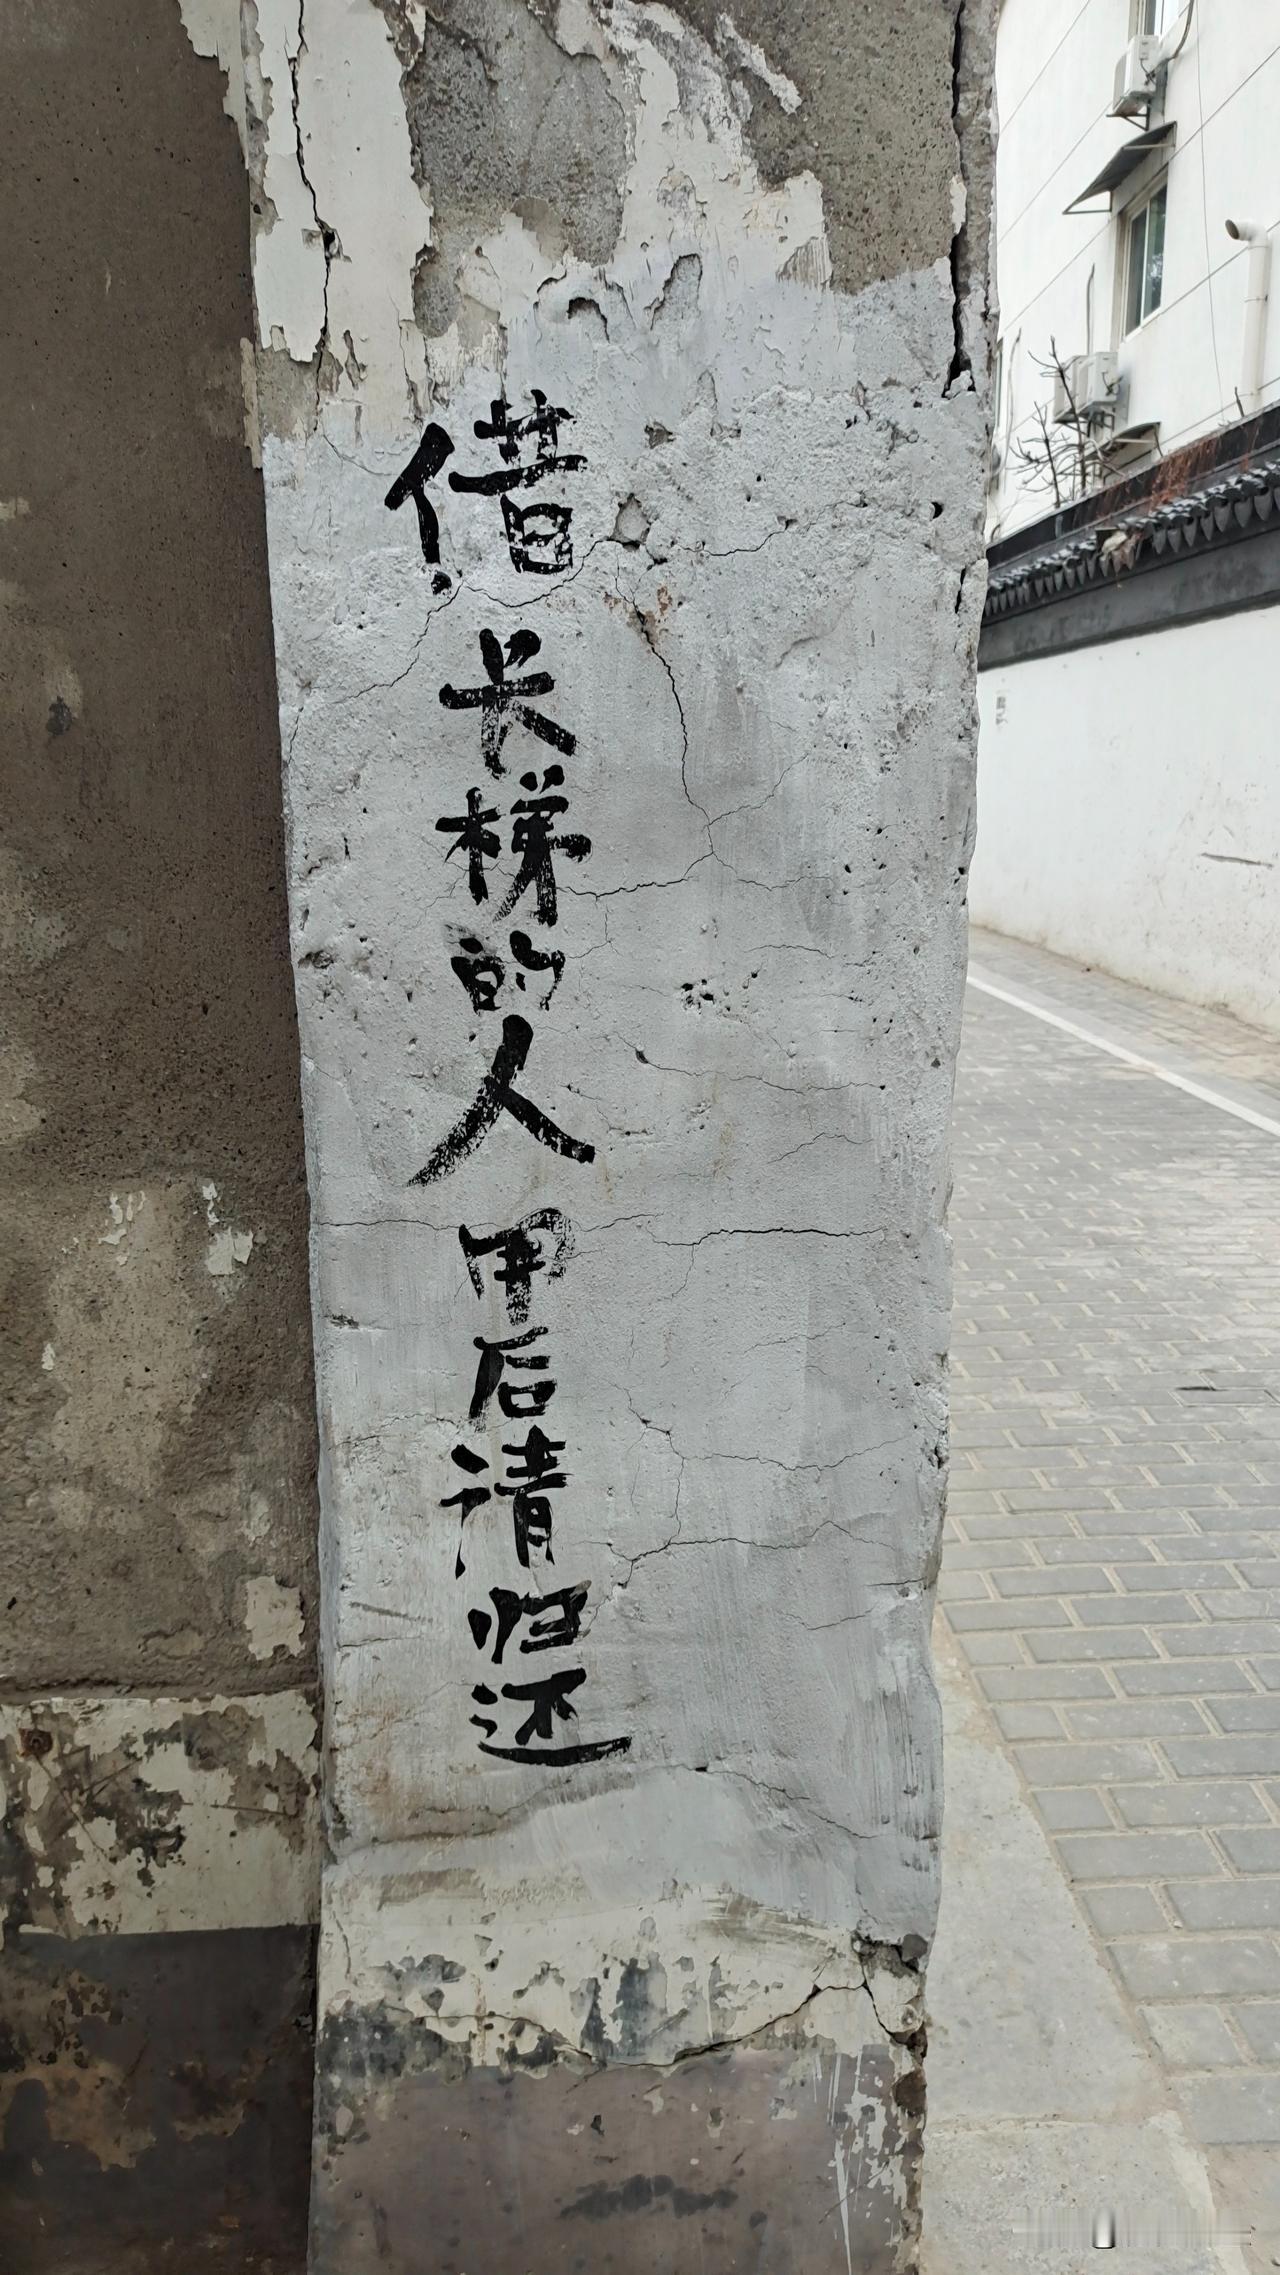 借长梯的人用后请归还